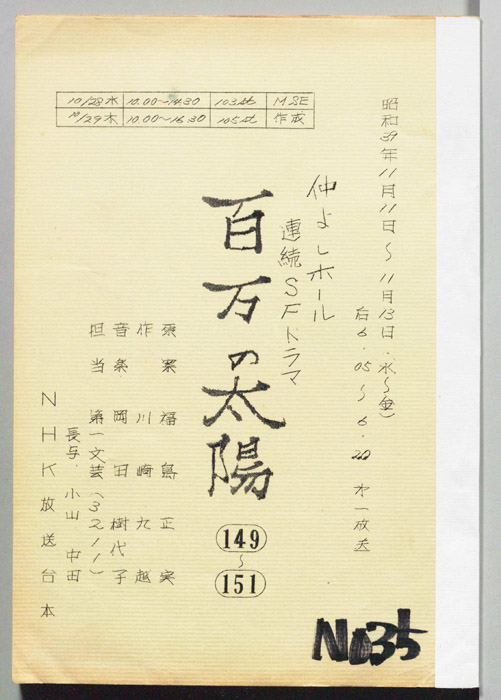 10/28水 10.00〜14.30 103st MSE
10/29木 10.00〜16.30 105st 作成
昭和39年11月11日〜11月13日・水〜(金)
后6.05〜6.20 オ一放送
仲よしホール
連続SFドラマ
百万の太陽
149
〜
151
福島正実
作 川崎九越
音楽 岡田樹代子
担当 第一文芸(3211)
長与・小山 中田
NHK放送台本
No35